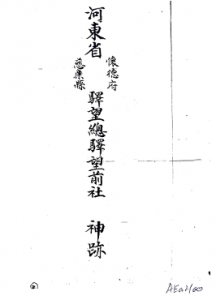 河東省
懷德府
慈廉縣
驛望總驛望前社
神跡